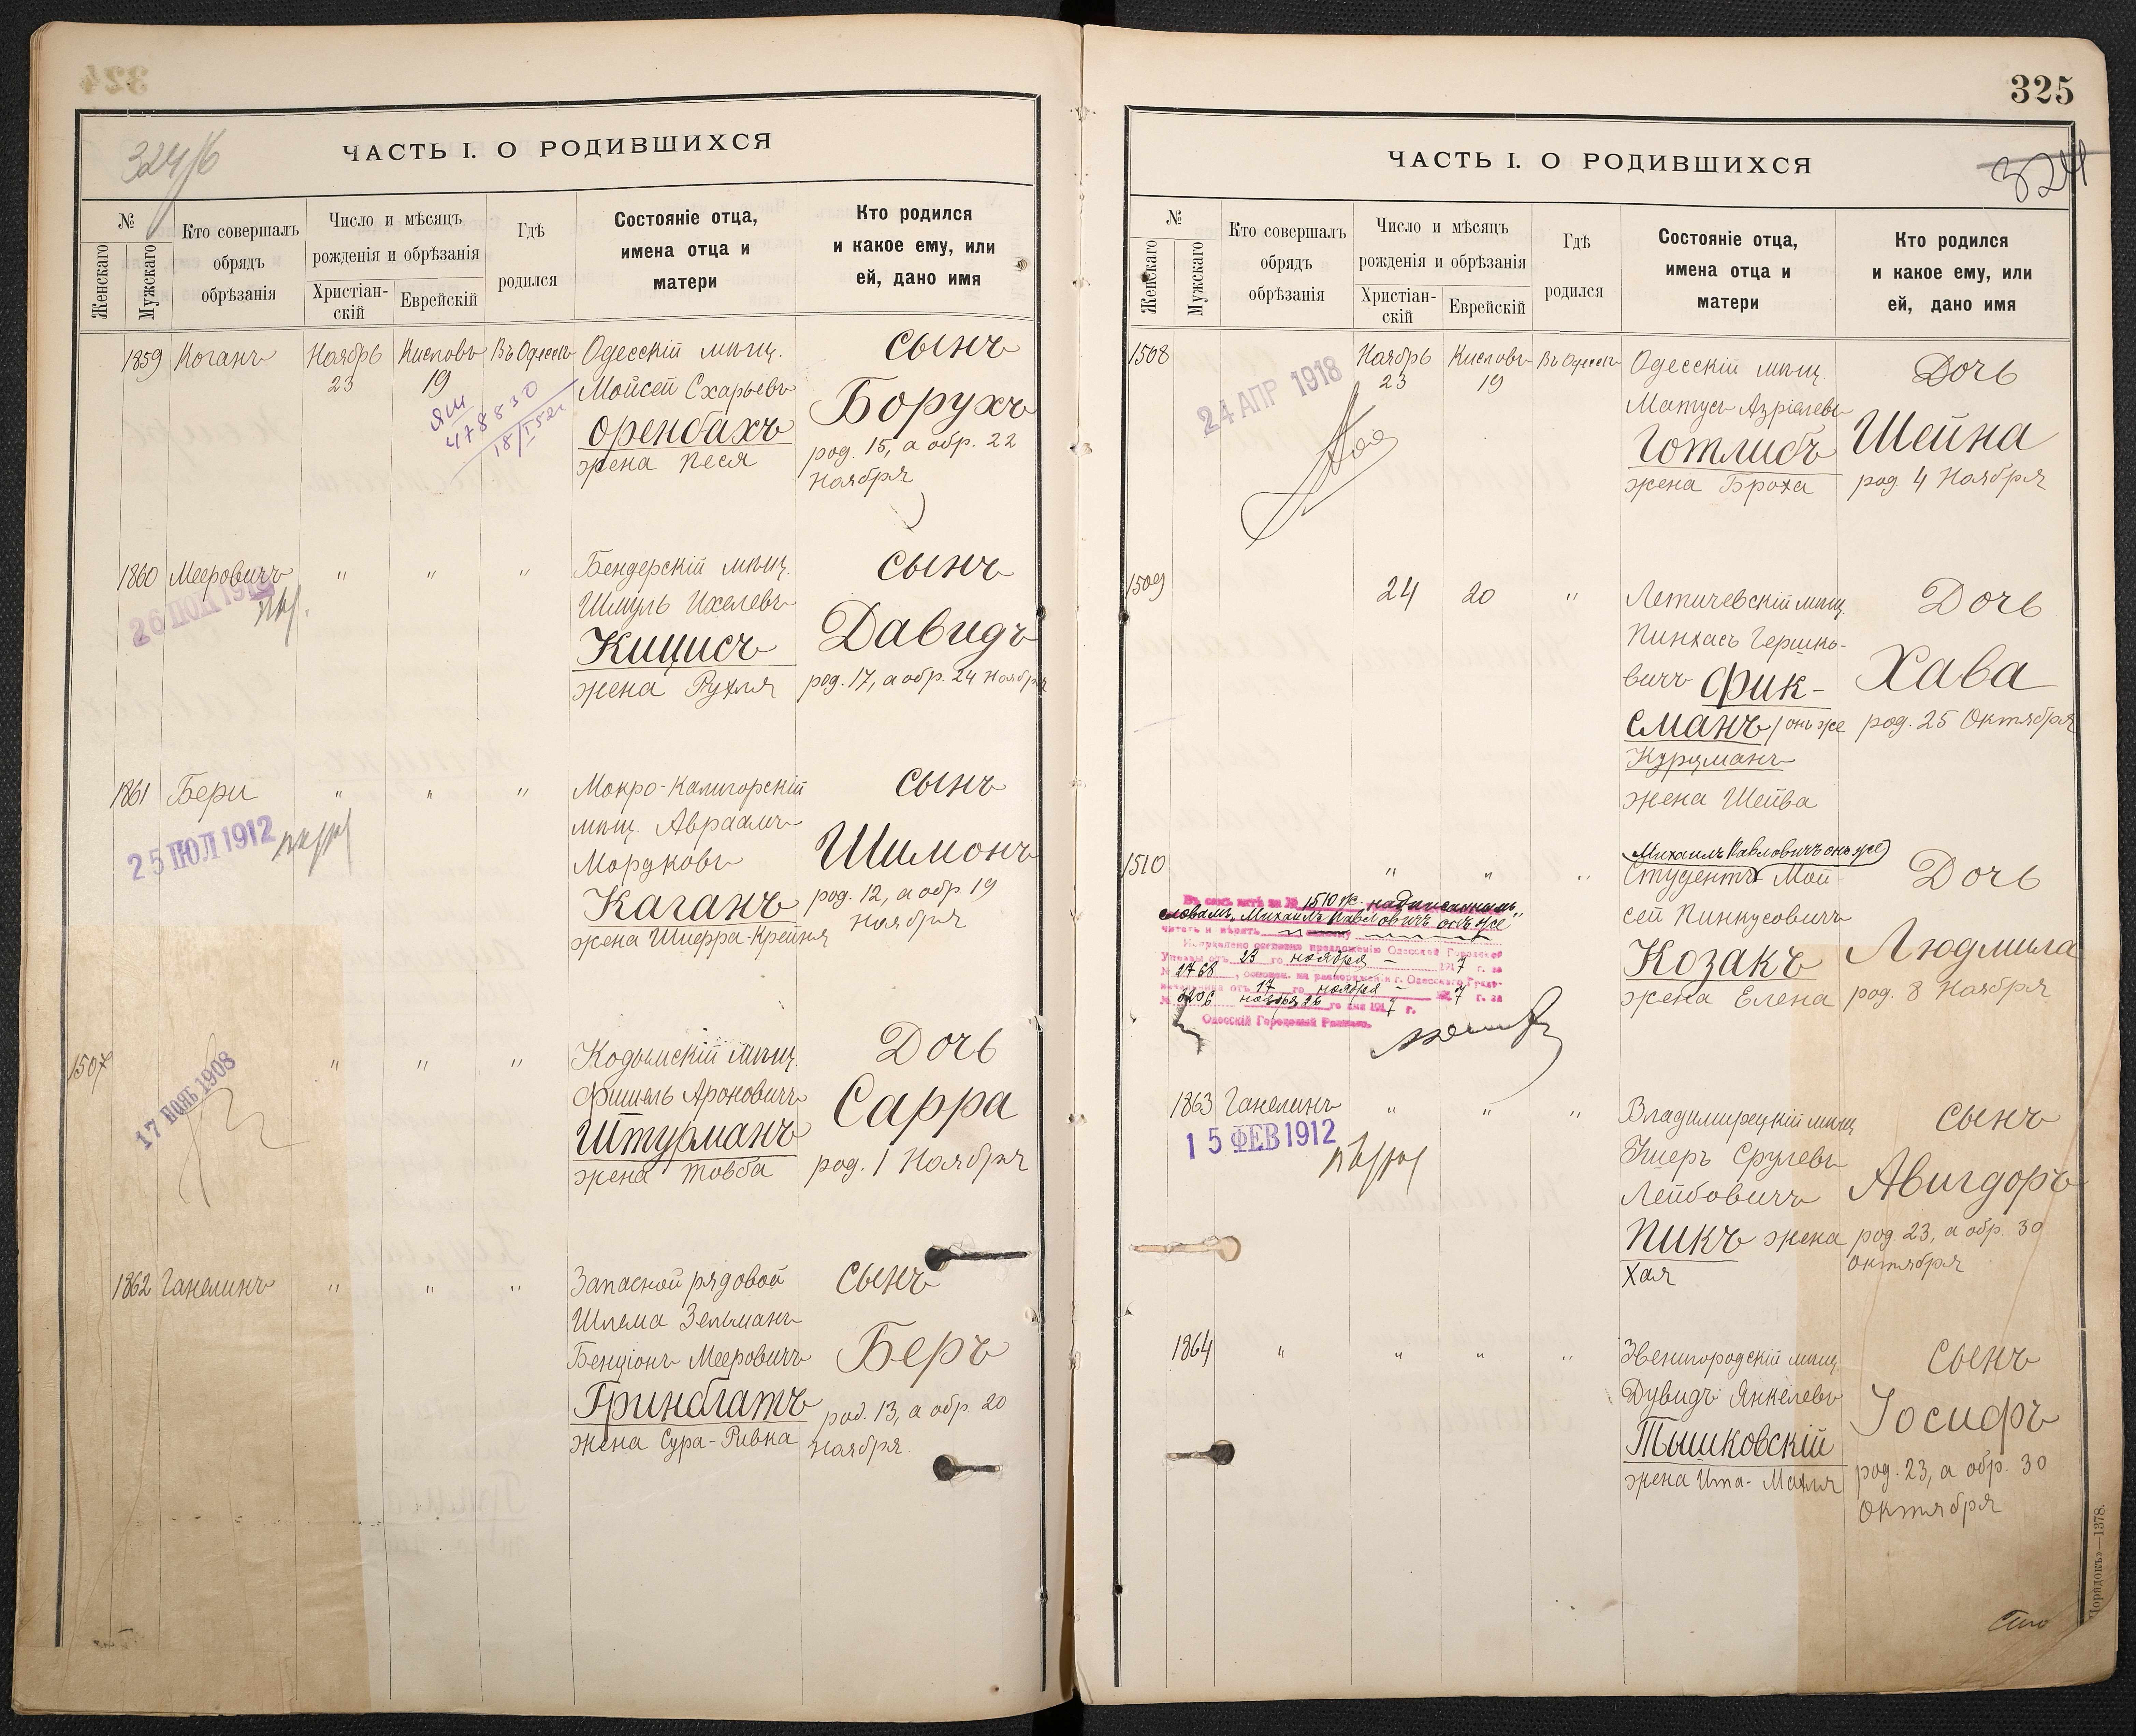 324/б
ЧАСТЬ I. О РОДИВШИХСЯ
№
Женскаго
Мужскаго
Кто совершалъ
обрядъ
обрѣзанія
Число и мѣсяцъ
рожденія и обрѣзанія
Христіан-
скій
Еврейскій
Гдѣ
родился
Состояніе отца,
имена отца и
матери
Кто родился
и какое ему, или
ей, дано имя
1859 Коганъ Ноябрь Кисловъ Въ Одессѣ Одесскій мѣщ. сынъ
23 19 Мойсей Схарьевъ Борухъ
478830
Оренбахъ род. 15, а обр. 22
жена Песя Ноября
1860 Мееровичъ " " " Бендерскій мѣщ. сынъ
Шмуль Ихелевъ
Кицисъ Давидъ
жена Рухля род. 17, а обр. 24 Ноября
1861 Бери " " " Мокро-Калигорскій сынъ
25 ІЮЛ 1912 мѣщ. Авраамъ
Мордковъ Шимонъ
Каганъ род. 12, а обр. 19
жена Шифра-Крейня Ноября
1507 " " " Кодымскій мѣщ. Дочь
17 НОЯБ 1908
Фишель Ароновичъ Сарра
Штурманъ
жена Товба род. 1 Ноября
1862 Ганелинъ " " " Запасной рядовой сынъ
Шлема Зельманъ
Бенціонъ Мееровичъ Беръ
Гринблатъ род. 13, а обр. 20
жена Сура-Ривка Ноября
325
324
ЧАСТЬ I. О РОДИВШИХСЯ
№
Женскаго
Мужскаго
Кто совершалъ
обрядъ
обрѣзанія
Число и мѣсяцъ
рожденія и обрѣзанія
Христіан-
скій
Еврейскій
Гдѣ
родился
Состояніе отца,
имена отца и
матери
Кто родился
и какое ему, или
ей, дано имя
1508 Ноябрь Кисловъ Въ Одессѣ Одесскій мѣщ. Дочь
24 АПР 1918
23 19 Матусъ Азріелевъ
Готлибъ Шейна
жена Броха род. 4 Ноября
1509 24 20 " Летичевскій мѣщ. Дочь
Пинхасъ Гершко-
вичъ Фик- Хава
сманъ/онъ же род. 25 Октября
Курцманъ
жена Шейва
Михаилъ Павловичъ онъ же
1510 " " " Студентъ Мой- Дочь
сей Пинкусовичъ
Козакъ Людмила
жена Елена род. 8 Ноября
1510 ж. надписаннымъ
словамъ "Михаилъ Павловичъ онъ же"
Исправлено согласно предложенію Одесской Городской
Управы отъ 23 го ноября 1917 г. за
№ 2768
отъ 17 го ноября 1917 г. за
№ 3206 ноября 26 го дня 1917 г.
Одесскій Городовой Раввинъ
1863 Ганелинъ " " " Владимирецкій мѣщ. сынъ
15 ФЕВ 1912
Ушеръ Срулевъ
Лейбовичъ Авигдоръ
Пикъ жена род. 23, а обр. 30
Хая Октября
1864 " " " " Звенигородскій мѣщ. сынъ
Дувидъ Янкелевъ
Іосифъ
Тышковскій
жена Ита-Махля род. 23, а обр. 30
Октября
Порядокъ—1378.